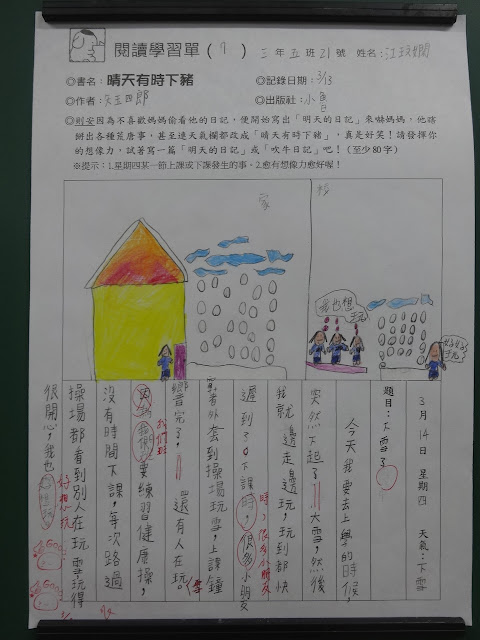 閱讀學習單(7) 三年五班21號 姓名:江玟嫻
◎書名:晴天有時下豬 ◎記錄日期:3/13
◎作者:矢玉四郎 ◎出版社:小魯
◎則安因為不喜歡媽媽偷看他的日記,便開始寫出「明天的日記」來嚇媽媽,他瞎
掰出各種荒唐事,甚至連天氣欄都改成「晴天有時下豬」,真是好笑!請發揮你
的想像力,試著寫一篇「明天的日記」或「吹牛日記」吧!(至少80字)
※提示:1.星期四某一節上課或下課發生的事。2.愈有想像力愈好喔!
家
我也想玩
好好玩
3月14日 星期四 天氣:下雪
題目:下雪了
今天我要去上學的時候,
突然下起了大雪,然後
我就邊走邊玩,玩到都快
遲到了。下課時,很多小朋友
穿著外套到操場玩雪,上課鐘
響完了,還有人在玩。
因為我們要練習健康操,
沒有時間下課,等次路過
操場都看到別人在玩雪玩得
很開心,我也
時,很多小朋友
學
我們班
好想玩